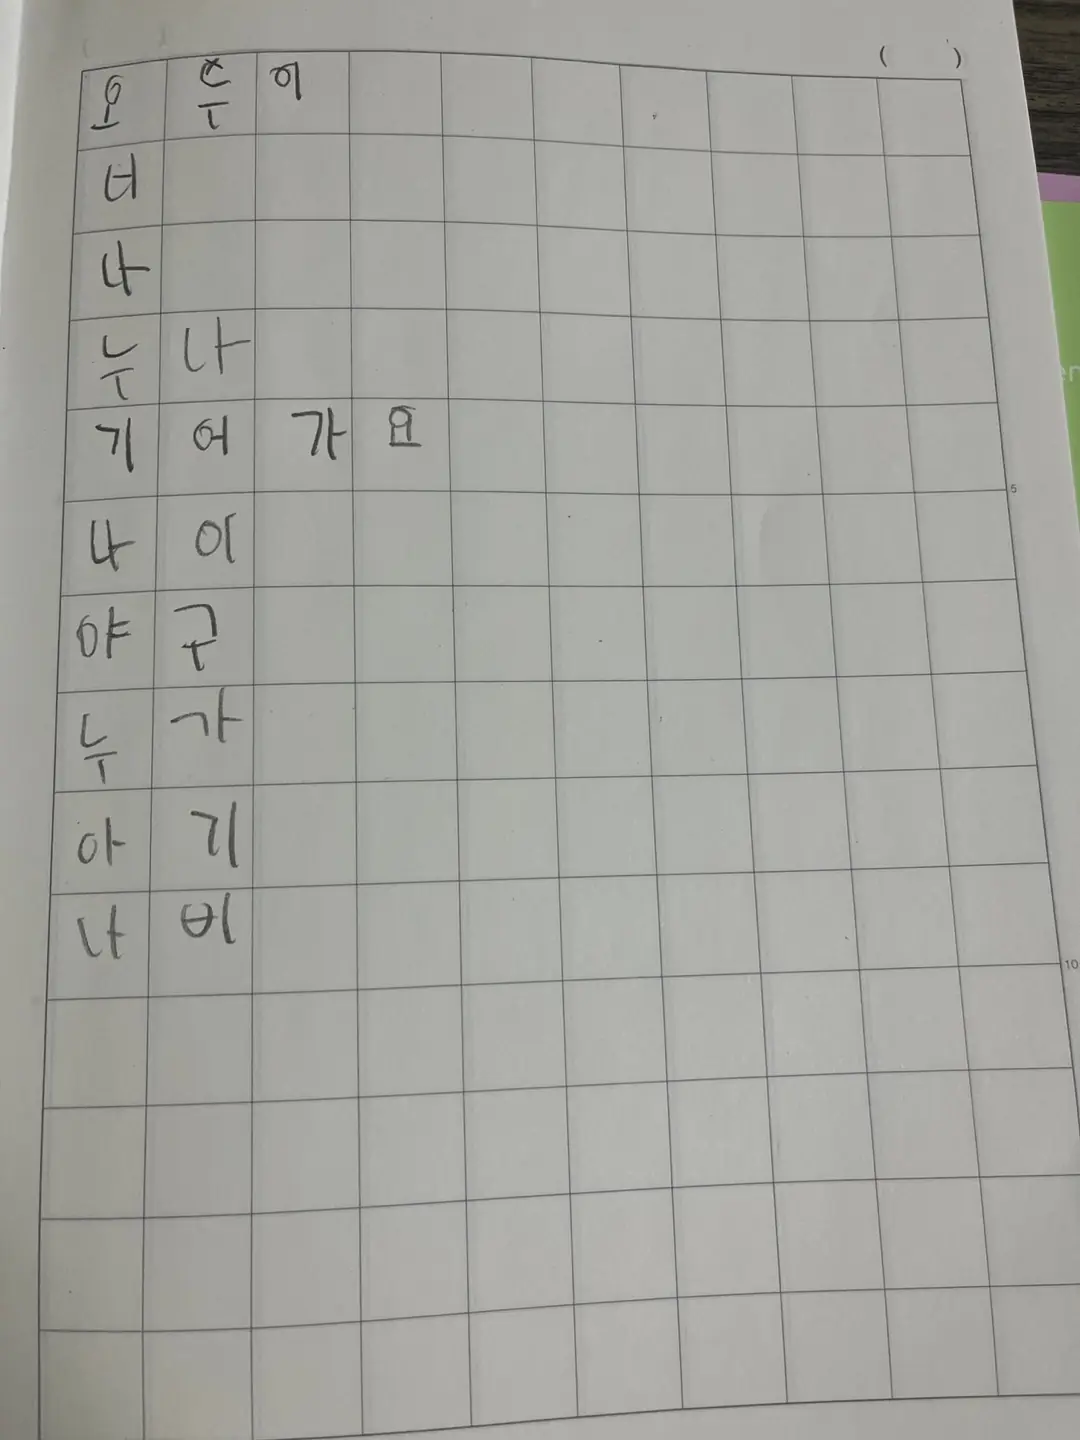 (      )
오 쑤 이
너
나
누 나
기 어 가 요
5
나 이
야 구
누 가
아 기
나 비
10